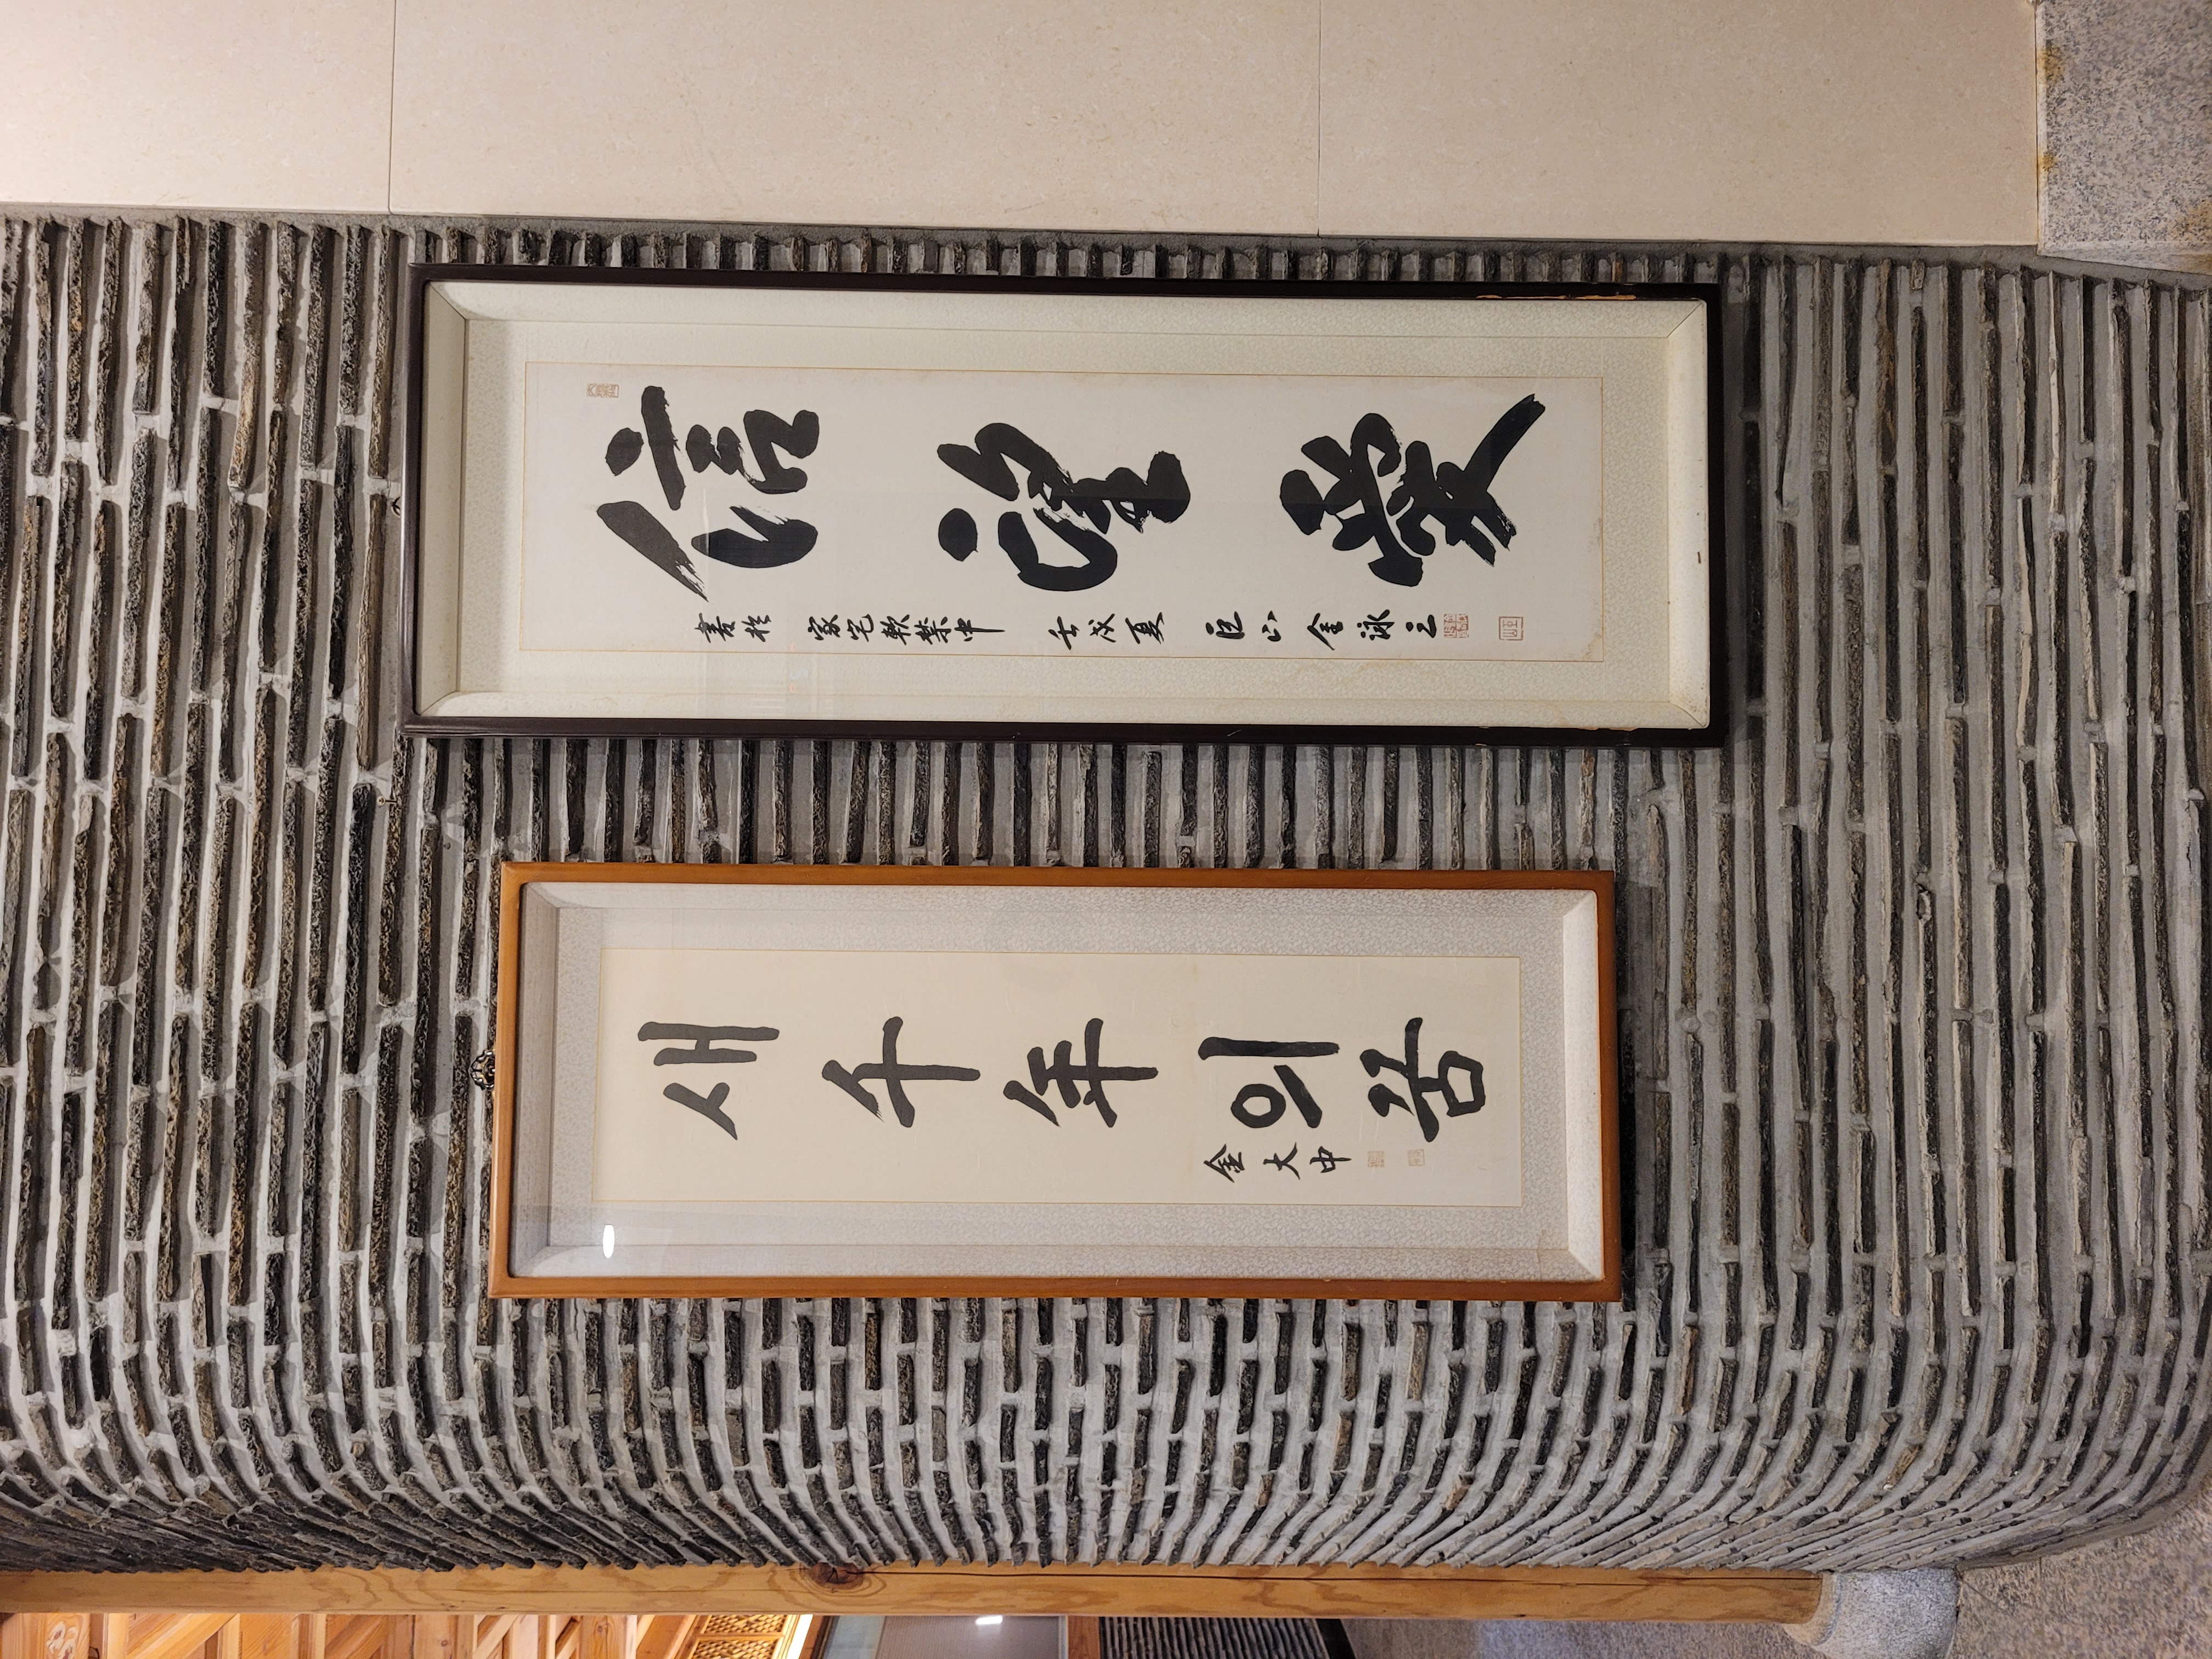 信望愛
書於 家宅軟禁中 壬戌夏 巨山 金泳三
새千年의꿈
金大中